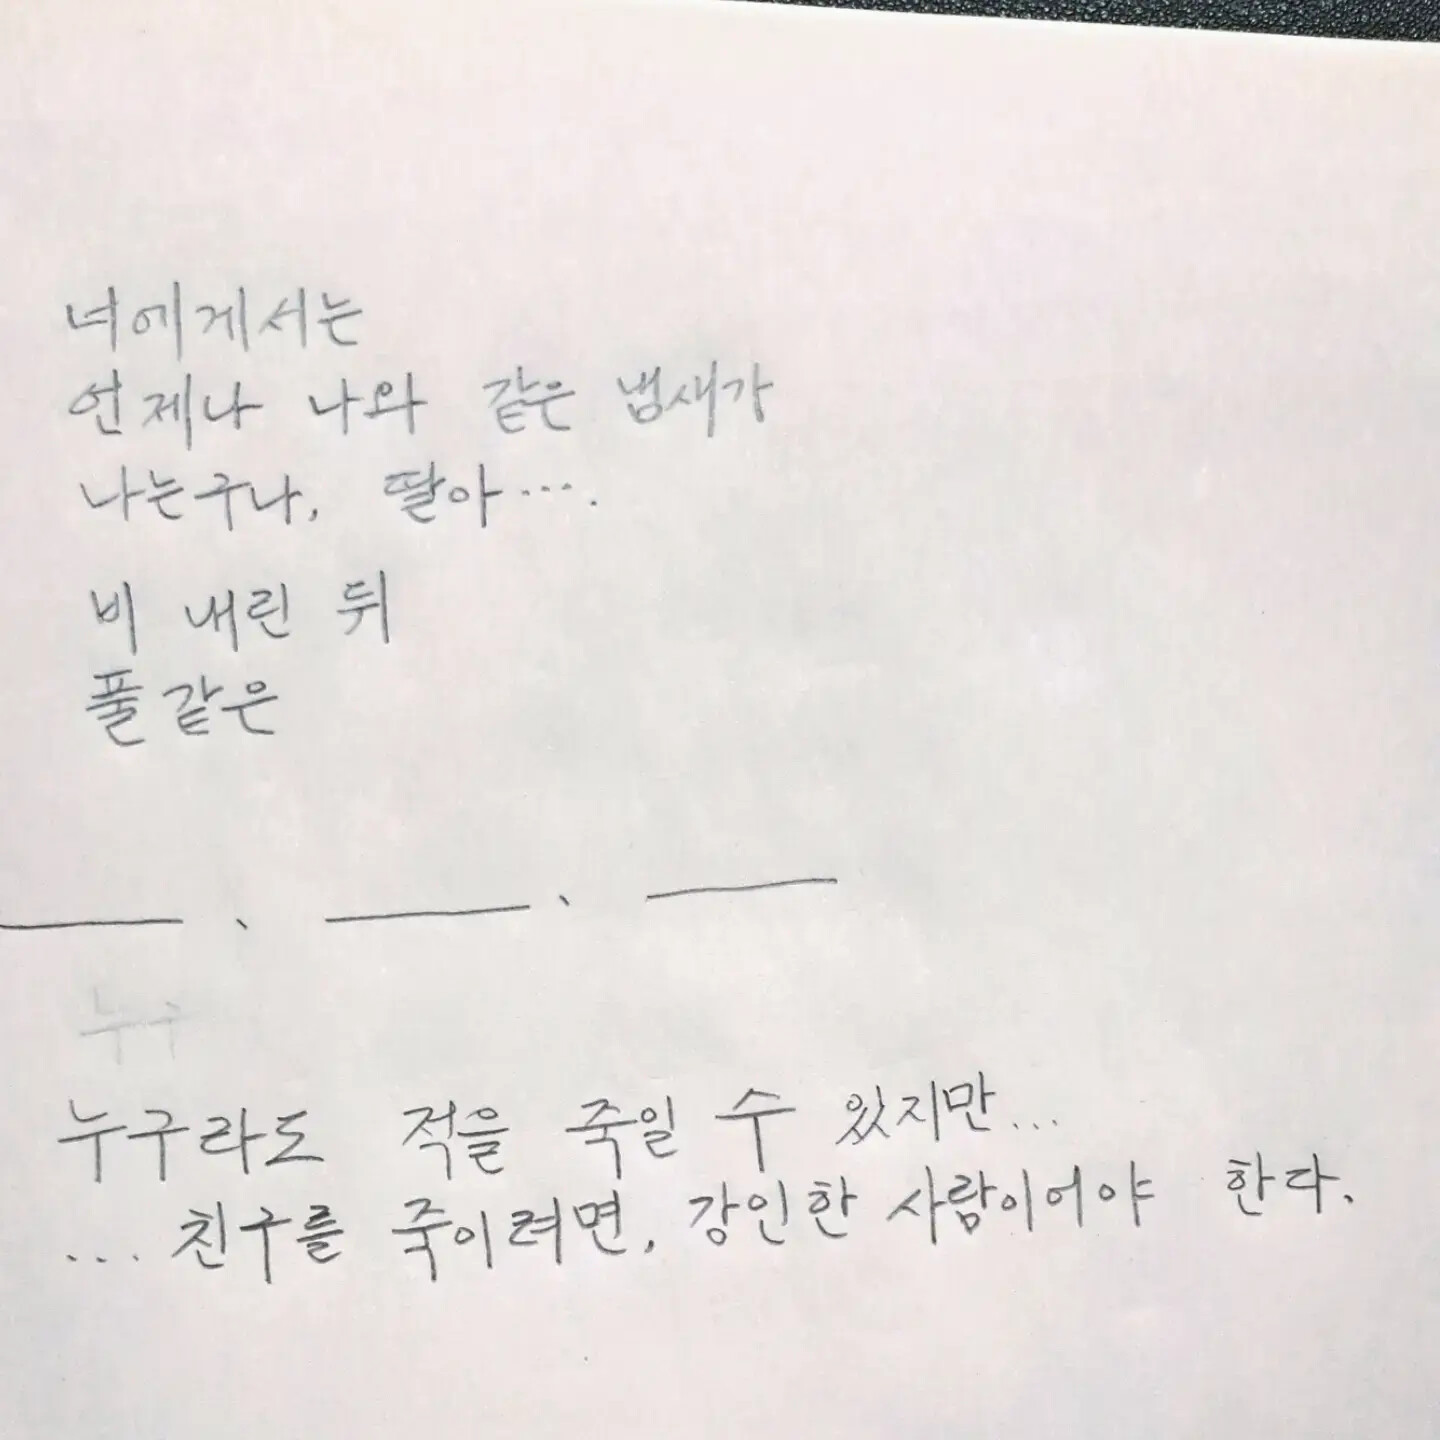 너에게서는
언제나 나와 같은 냄새가
나는구나, 딸아….
비 내린 뒤
풀같은
누구
누구라도 적을 죽일 수 있지만...
... 친구를 죽이려면, 강인한 사람이어야 한다.